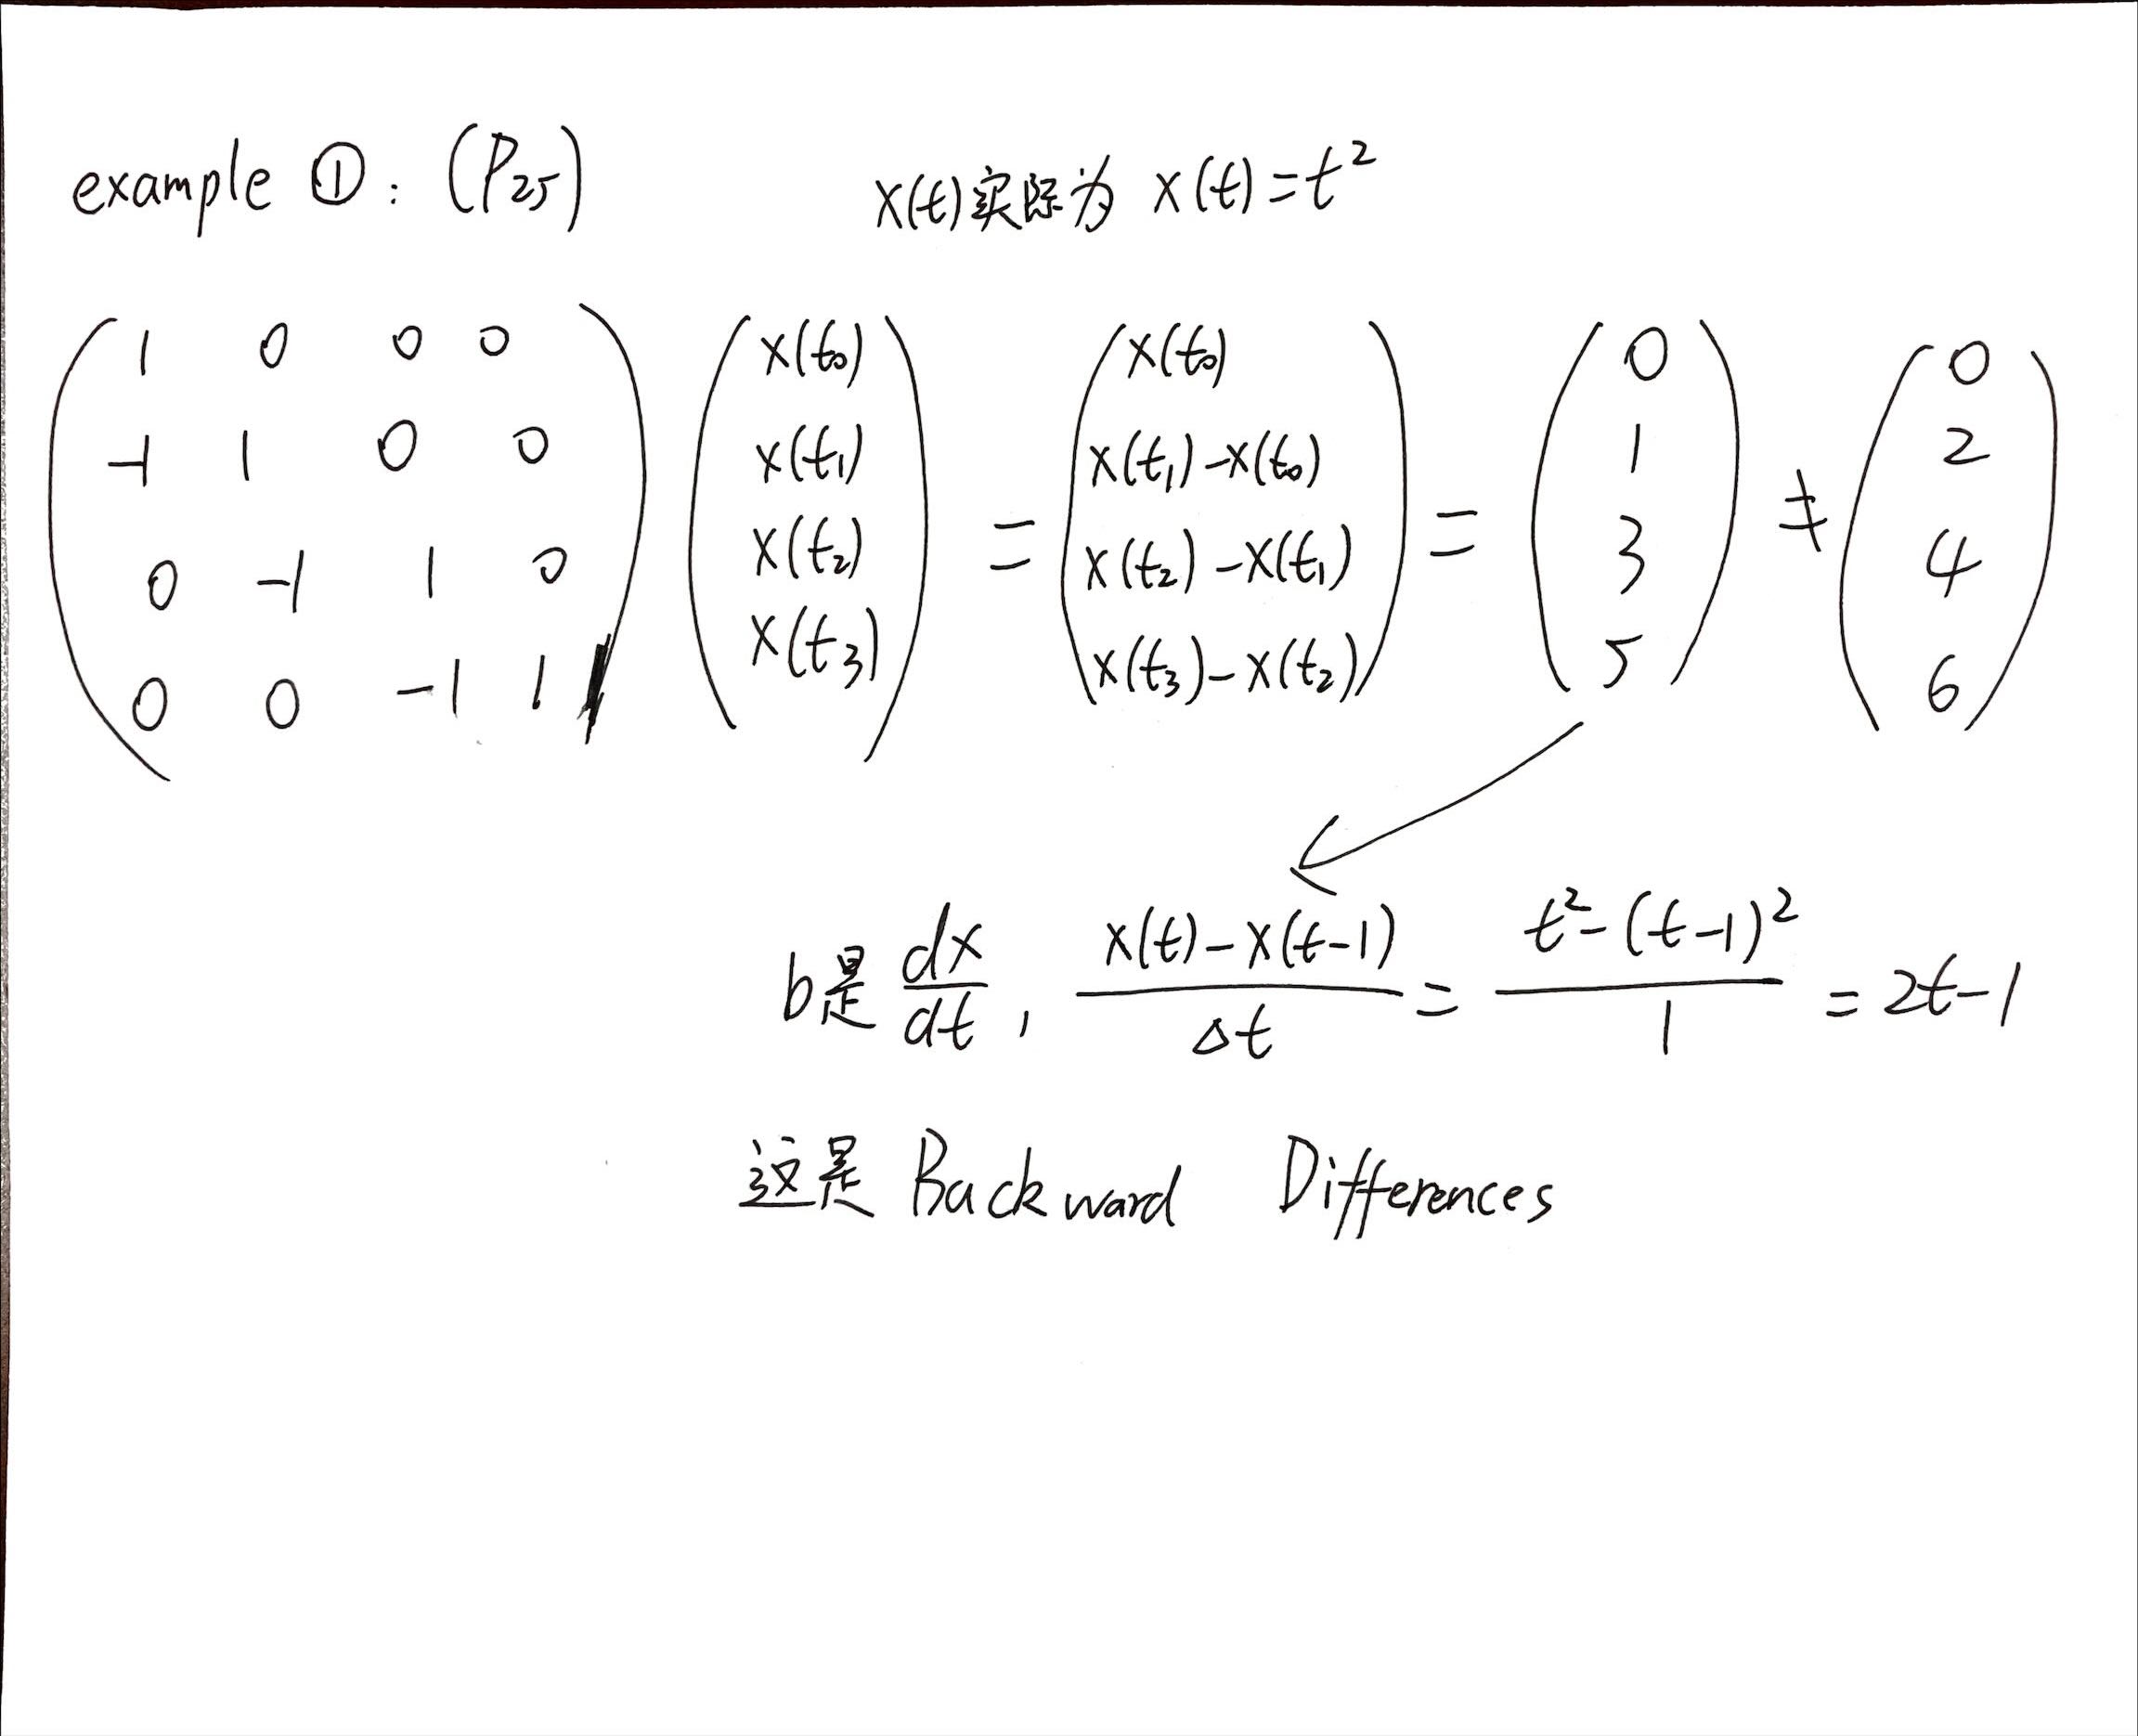 example ①: (P25)  x(t)实际为 x(t)=t²
( 1 0 0 0 ; -1 1 0 0 ; 0 -1 1 0 ; 0 0 -1 1 ) ( x(t₀) ; x(t₁) ; x(t₂) ; x(t₃) ) = ( x(t₀) ; x(t₁)-x(t₀) ; x(t₂)-x(t₁) ; x(t₃)-x(t₂) ) = ( 0 ; 1 ; 3 ; 5 ) ≠ ( 0 ; 2 ; 4 ; 6 )
b是 dx/dt, (x(t)-x(t-1))/Δt = (t²-(t-1)²)/1 = 2t-1
这是 Backward Differences